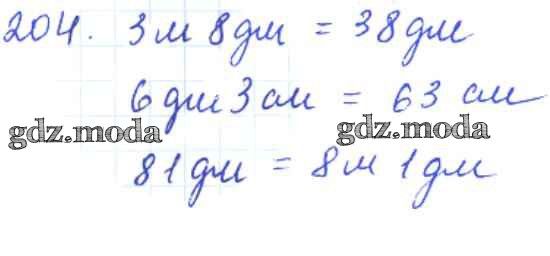 204. 3 м 8 дм = 38 дм
6 дм 3 см = 63 см
gdz.moda gdz.moda
81 дм = 8 м 1 дм